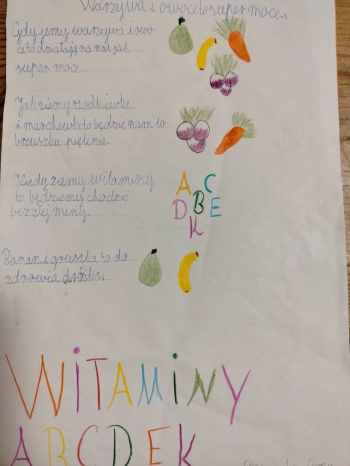 Warzywa i owoce to super moce.
Gdy jemy warzywa i owo-
ce to działają na nas jak
super moce.
Jak zjemy rzodkiewkę
i marchewkę to będzie nam w
brzuszku pięknie.
Kiedy zjemy witaminy
to będziemy chodzić
bez złej miny.
A C
D B E
K
Banan i gruszka to do
zdrowia dróżka.
WITAMINY
A B C D E K